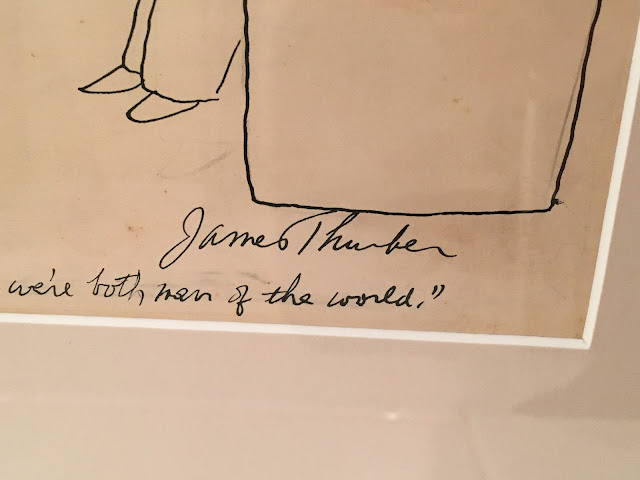 James Thurber
we're both men of the world."